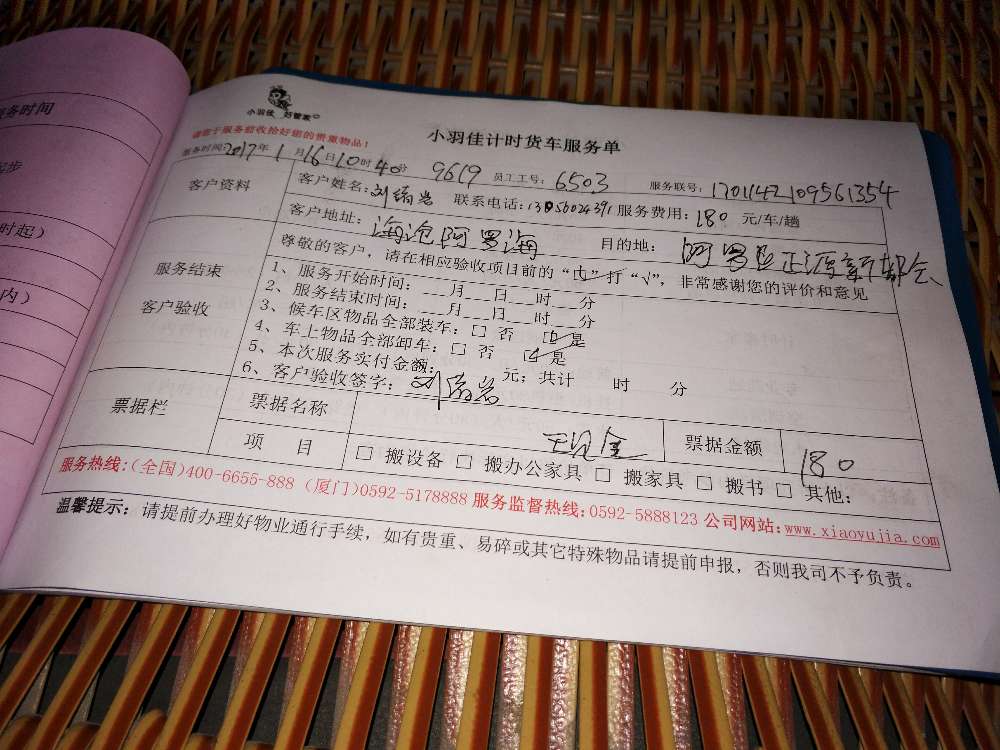 务时间
起步
时起）
内）
小羽佳 好管家
小羽佳计时货车服务单
请您于服务前收拾好您的贵重物品！
服务时间：2017年1月16日10时40分 9619 员工工号：6503 服务联号：1701142109561354
客户资料
客户姓名：刘 联系电话：13856024391 服务费用：180 元/车/趟
客户地址：海沧阿罗海 目的地：阿罗 正源新都会
服务结束
客户验收
尊敬的客户，请在相应验收项目前的“□”打“√”，非常感谢您的评价和意见
1、服务开始时间：__月__日__时__分
2、服务结束时间：__月__日__时__分
3、候车区物品全部装车：□ 否 ☑是
4、车上物品全部卸车：□ 否 ☑是
5、本次服务实付金额： 元；共计 时 分
6、客户验收签字：刘
票据栏
票据名称 现金 票据金额 180
项 目 □ 搬设备 □ 搬办公家具 □ 搬家具 □ 搬书 □ 其他：
服务热线：(全国)400-6655-888 (厦门)0592-5178888 服务监督热线：0592-5888123 公司网站：www.xiaoyujia.com
温馨提示：请提前办理好物业通行手续，如有贵重、易碎或其它特殊物品请提前申报，否则我司不予负责。